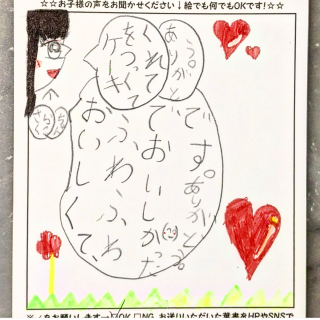 ☆☆お子様の声をお聞かせください↓絵でも何でもOKです!☆☆
ケーキ
をつくって
くれて
ありがと
う。
おいしくて、
ふわふわ
でおいしかった
です。ありがとう。
をお願いします→□OK □NG お送りいただいた葉書をHPやSNSで